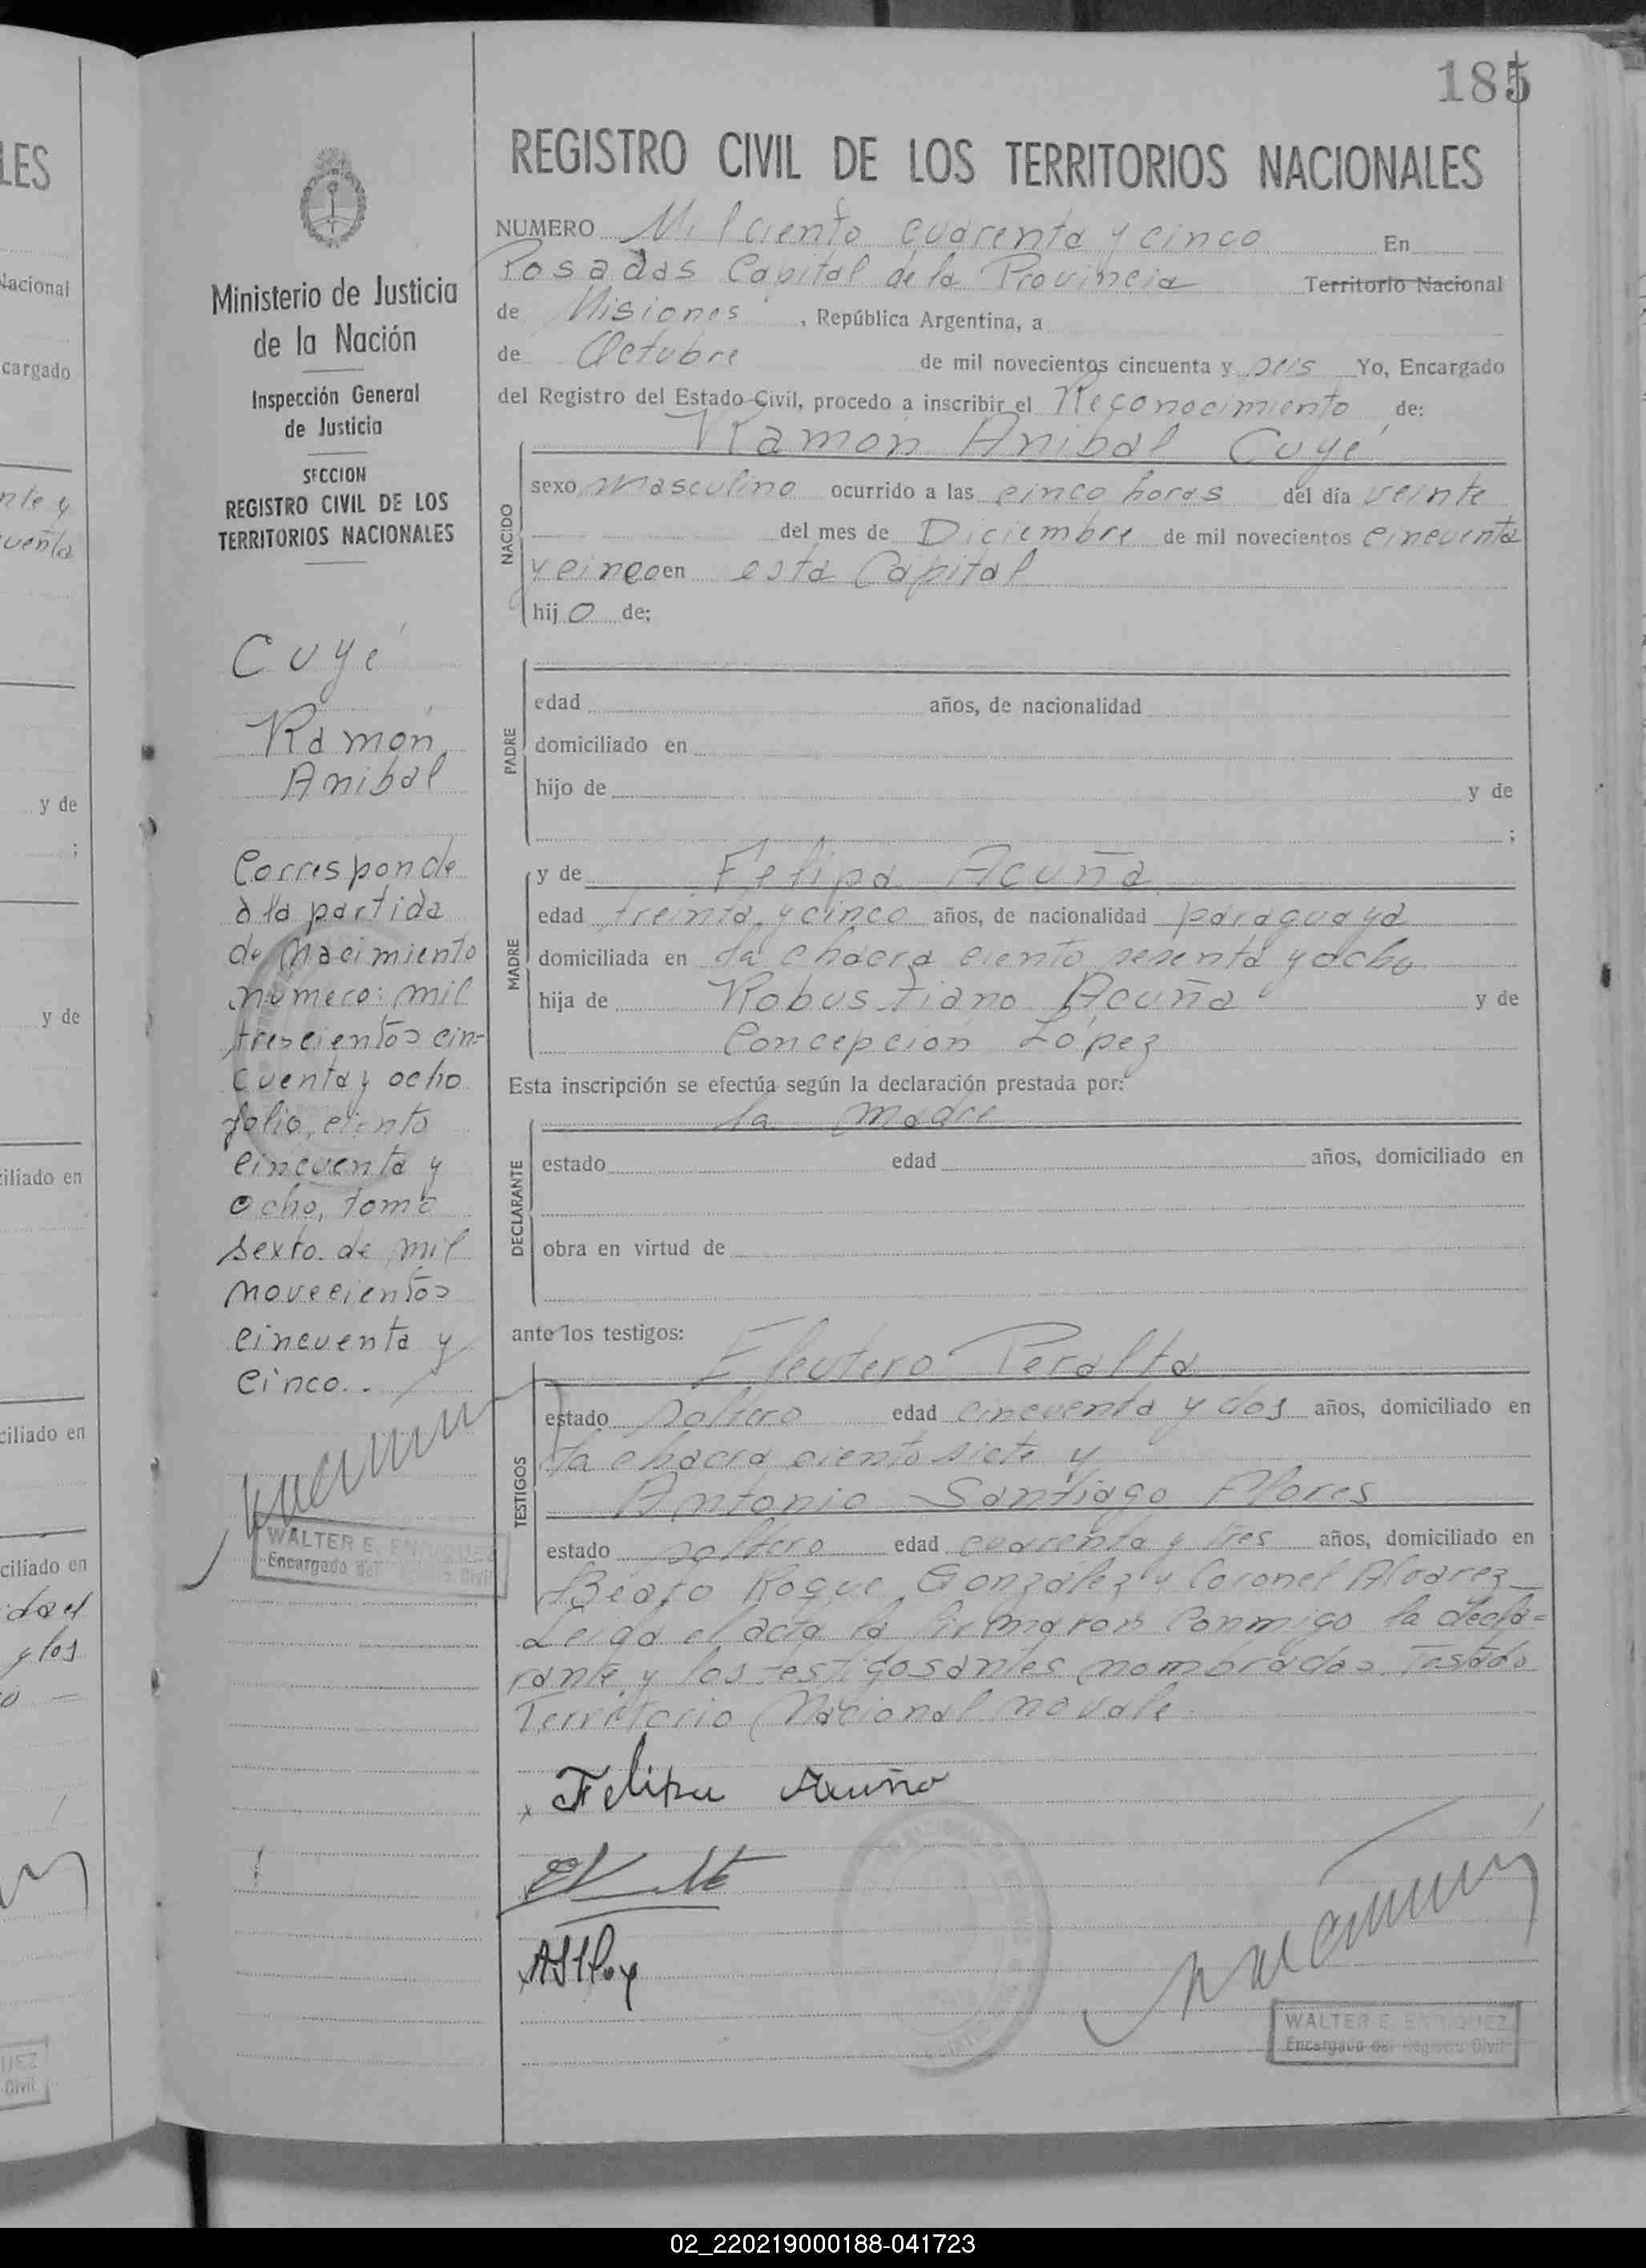 185
LES
Nacional
cargado
nte y
cuenta
y de
;
y de
ciliado en
ciliado en
ciliado en
y los
UEZ
Civil
Ministerio de Justicia
de la Nación
Inspección General
de Justicia
SECCION
REGISTRO CIVIL DE LOS
TERRITORIOS NACIONALES
Cuyé
Ramón
Anibal
Corresponde
a la partida
de Nacimiento
número: mil
trescientos cin=
cuenta y ocho
folio, ciento
cincuenta y
ocho, tomo
sexto de mil
novecientos
cincuenta y
cinco..
WALTER E. ENRIQUEZ
Encargado del Registro Civil
REGISTRO CIVIL DE LOS TERRITORIOS NACIONALES
NUMERO Mil ciento cuarenta y cinco En
Posadas Capital de la Provincia Territorio Nacional
de Misiones, República Argentina, a
de Octubre de mil novecientos cincuenta y seis Yo, Encargado
del Registro del Estado Civil, procedo a inscribir el Reconocimiento de:
Ramón Anibal Cuyé
NACIDO
sexo masculino ocurrido a las cinco horas del día veinte
del mes de Diciembre de mil novecientos cincuenta
y cinco en esta Capital
hijo de;
PADRE
edad años, de nacionalidad
domiciliado en
hijo de y de
;
MADRE
y de Felipa Acuña
edad treinta y cinco años, de nacionalidad paraguaya
domiciliada en la chacra ciento sesenta y ocho
hija de Robustiano Acuña y de
Concepción López
Esta inscripción se efectúa según la declaración prestada por:
la madre
DECLARANTE
estado edad años, domiciliado en
obra en virtud de
ante los testigos:
Eleutero Peralta
TESTIGOS
estado soltero edad cincuenta y dos años, domiciliado en
la chacra ciento siete y
Antonio Santiago Flores
estado soltero edad cuarenta y tres años, domiciliado en
Beato Roque Gonzalez y Coronel Alvarez
Leida el acta la firmaron conmigo la decla=
rante y los testigos antes nombrados. Testado
Territorio Nacional no vale.
Felipa Acuña
WALTER E. ENRIQUEZ
Encargado del Registro Civil
02_220219000188-041723